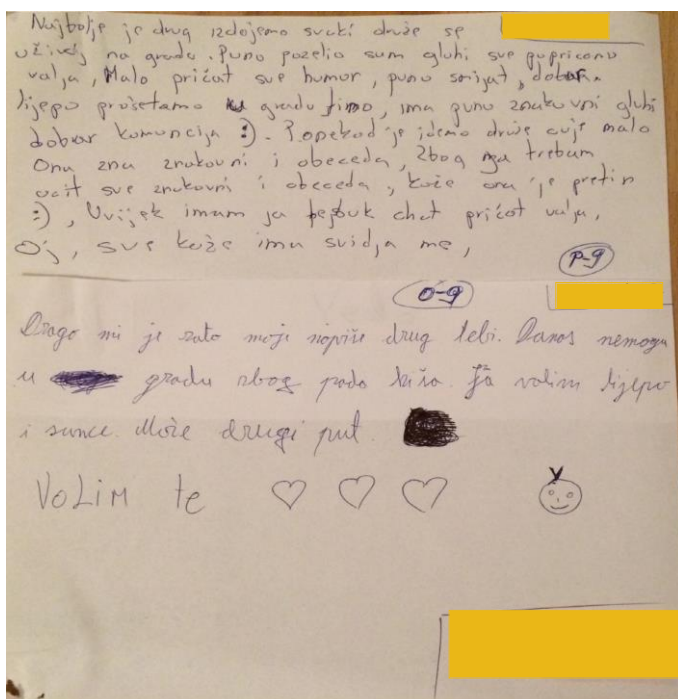 Najbolje je drug izdojemo svaki druže se
uživaj na gradu. Puno poželio sum gluhi sve pupriconu
valja, Malo pričat sve humor, puno smijat, dobar
lijepo prošetamo gradu fino, ima puno znakovni gluhi
dobar komuncija :). Ponekad je idemo druže čuje malo
Ona zna znakovni i obeceda, Zbog trebam
učit sve znakovni i obeceda, kaže ona je
:), Uvijek imam ja fejsbuk chat pričat valja,
Oj, sve kaže ima svidja me,
P-9
O-9
Drago mi je zato moje napiše drug tebi. Danas nemogu
u gradu zbog pada kiša. Ja volim lijepo
i sunce. Može drugi put.
VOLIM te